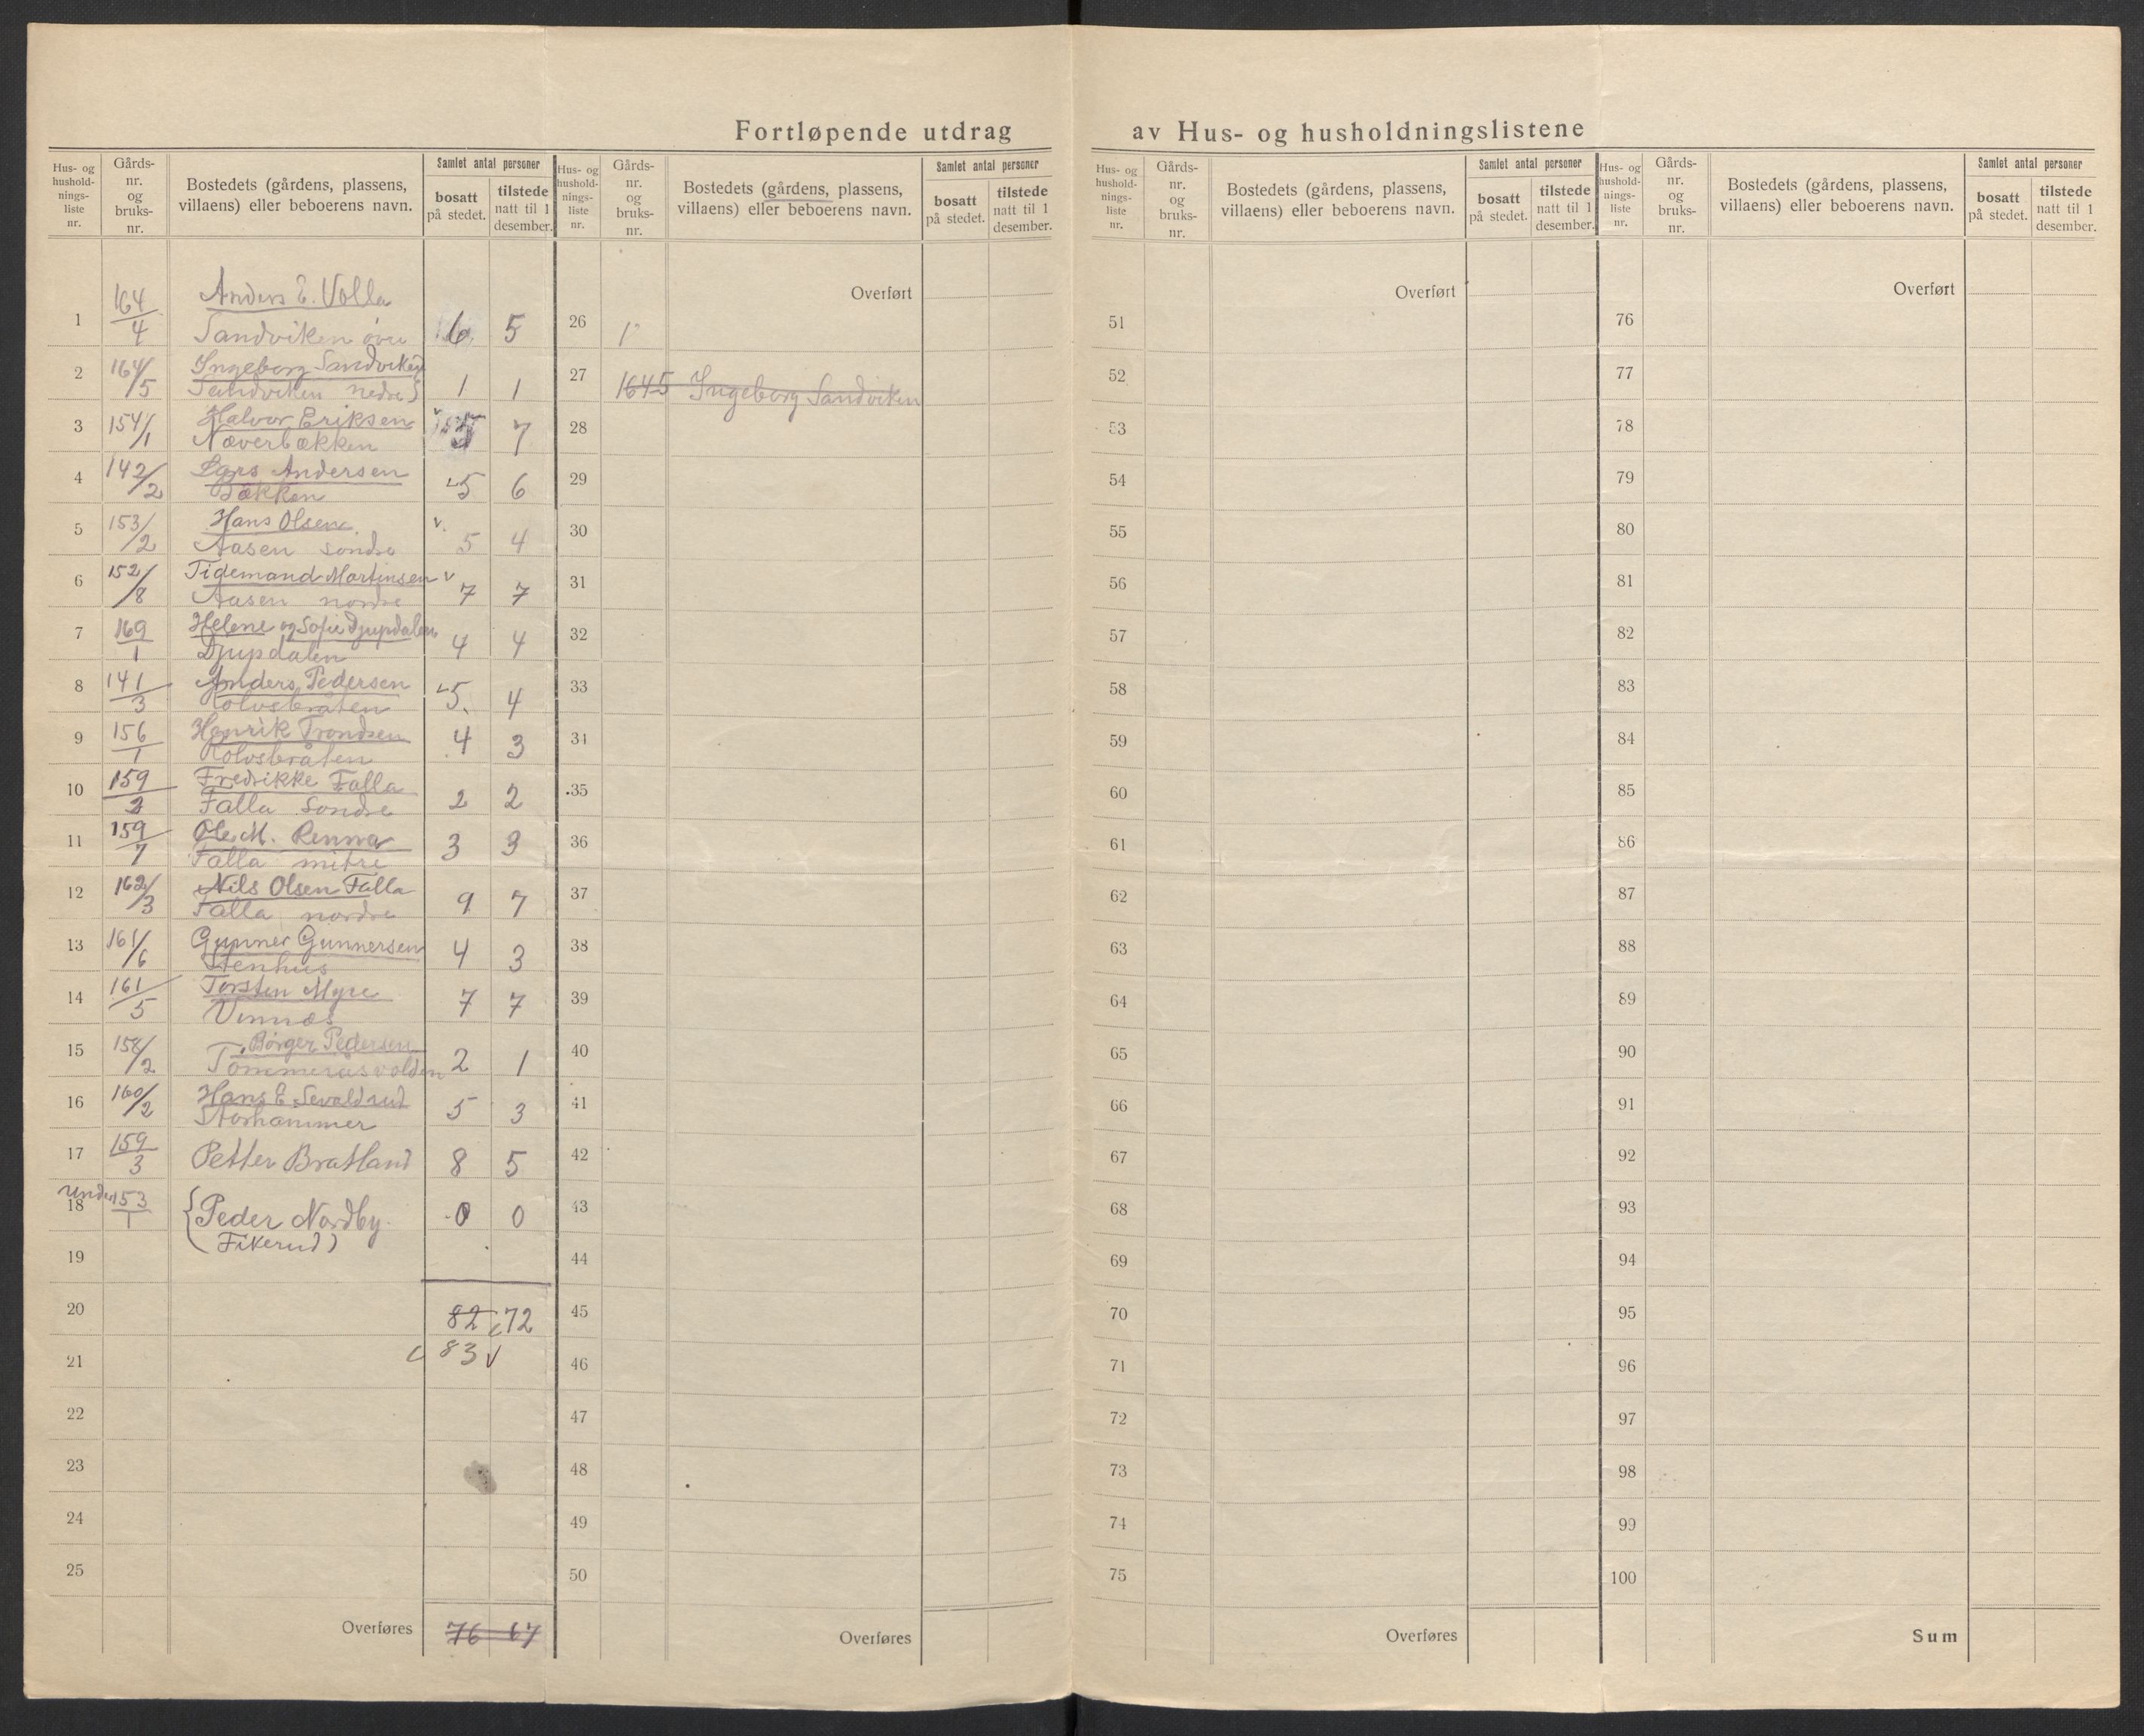 Fortløpende utdrag av Hus- og husholdningslistene
Hus- og hushold- nings- liste nr. | Gårds- nr. og bruks- nr. | Bostedets (gårdens, plassens, villaens) eller beboerens navn. | Samlet antal personer | bosatt på stedet. | tilstede natt til 1 desember.
1 164/4 Anders E. Volla
Sandviken övre 6 5
2 164/5 Ingeborg Sandviken
Sandviken nedre 1 1
3 154/1 Halvor Eriksen
Næverbækken 7
4 142/2 Lars Andersen
Bækken 5 6
5 153/2 Hans Olsen
Aasen söndre 5 4
6 152/8 Tidemand Martinsen
Aasen nordre 7 7
7 169/1 Helene og Sofie Djupdalen
Djupdalen 4 4
8 141/3 Anders Pedersen
Rolvsbråten 5 4
9 156/1 Henrik Trondsen
Rolvsbråten 4 3
10 159/2 Fredrikke Falla
Falla Söndre 2 2
11 159/7 Ole M. Renna
Falla mitre 3 3
12 162/3 Nils Olsen Falla
Falla nordre 9 7
13 161/6 Gunner Gunnersen
Stenhus 4 3
14 161/5 Torsten Myre
Vinnæs 7 7
15 158/2 Börger Pedersen
Tömmeråsvolden 2 1
16 160/2 Hans E. Sevaldrud
Storhammer 5 3
17 159/3 Petter Bratland 8 5
18 under 153/1 {Peder Nordby 0 0
Fikerud)
19
20 82 72
21 83 v
22
23
24
25
Overføres 76 67
Hus- og hushold- nings- liste nr. | Gårds- nr. og bruks- nr. | Bostedets (gårdens, plassens, villaens) eller beboerens navn. | Samlet antal personer | bosatt på stedet. | tilstede natt til 1 desember.
Overført
26 1
27 1645 Ingeborg Sandviken
28
29
30
31
32
33
34
35
36
37
38
39
40
41
42
43
44
45
46
47
48
49
50
Overføres
Hus- og hushold- nings- liste nr. | Gårds- nr. og bruks- nr. | Bostedets (gårdens, plassens, villaens) eller beboerens navn. | Samlet antal personer | bosatt på stedet. | tilstede natt til 1 desember.
Overført
51
52
53
54
55
56
57
58
59
60
61
62
63
64
65
66
67
68
69
70
71
72
73
74
75
Overføres
Hus- og hushold- nings- liste nr. | Gårds- nr. og bruks- nr. | Bostedets (gårdens, plassens, villaens) eller beboerens navn. | Samlet antal personer | bosatt på stedet. | tilstede natt til 1 desember.
Overført
76
77
78
79
80
81
82
83
84
85
86
87
88
89
90
91
92
93
94
95
96
97
98
99
100
Sum